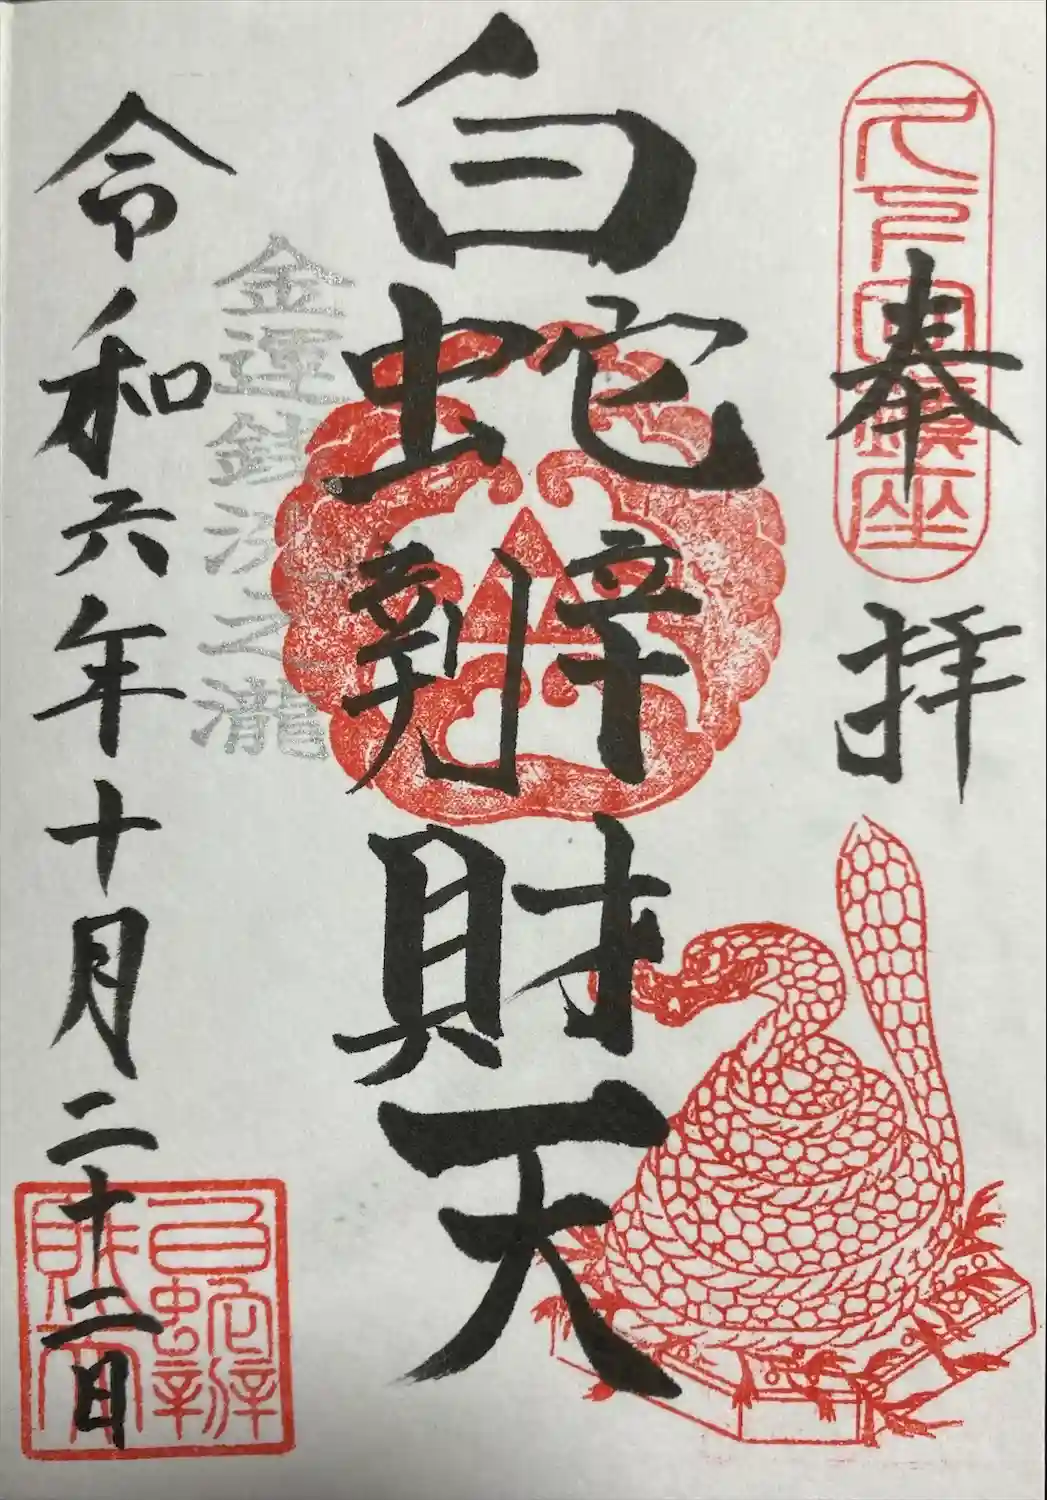 久下田鎮座
奉拝
白蛇辨財天
金運銭洗之瀧
令和六年十月二十二日
白蛇辨
財天